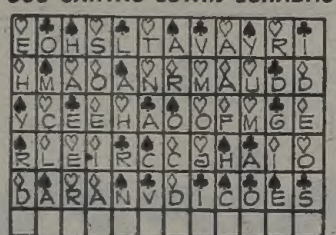 E O H S L T A V A Y R I
H M A O A N R M A U D D
Y C E E H A O O F M G E
R L E I R C C S H A I O
D A R A N V D I C O E S